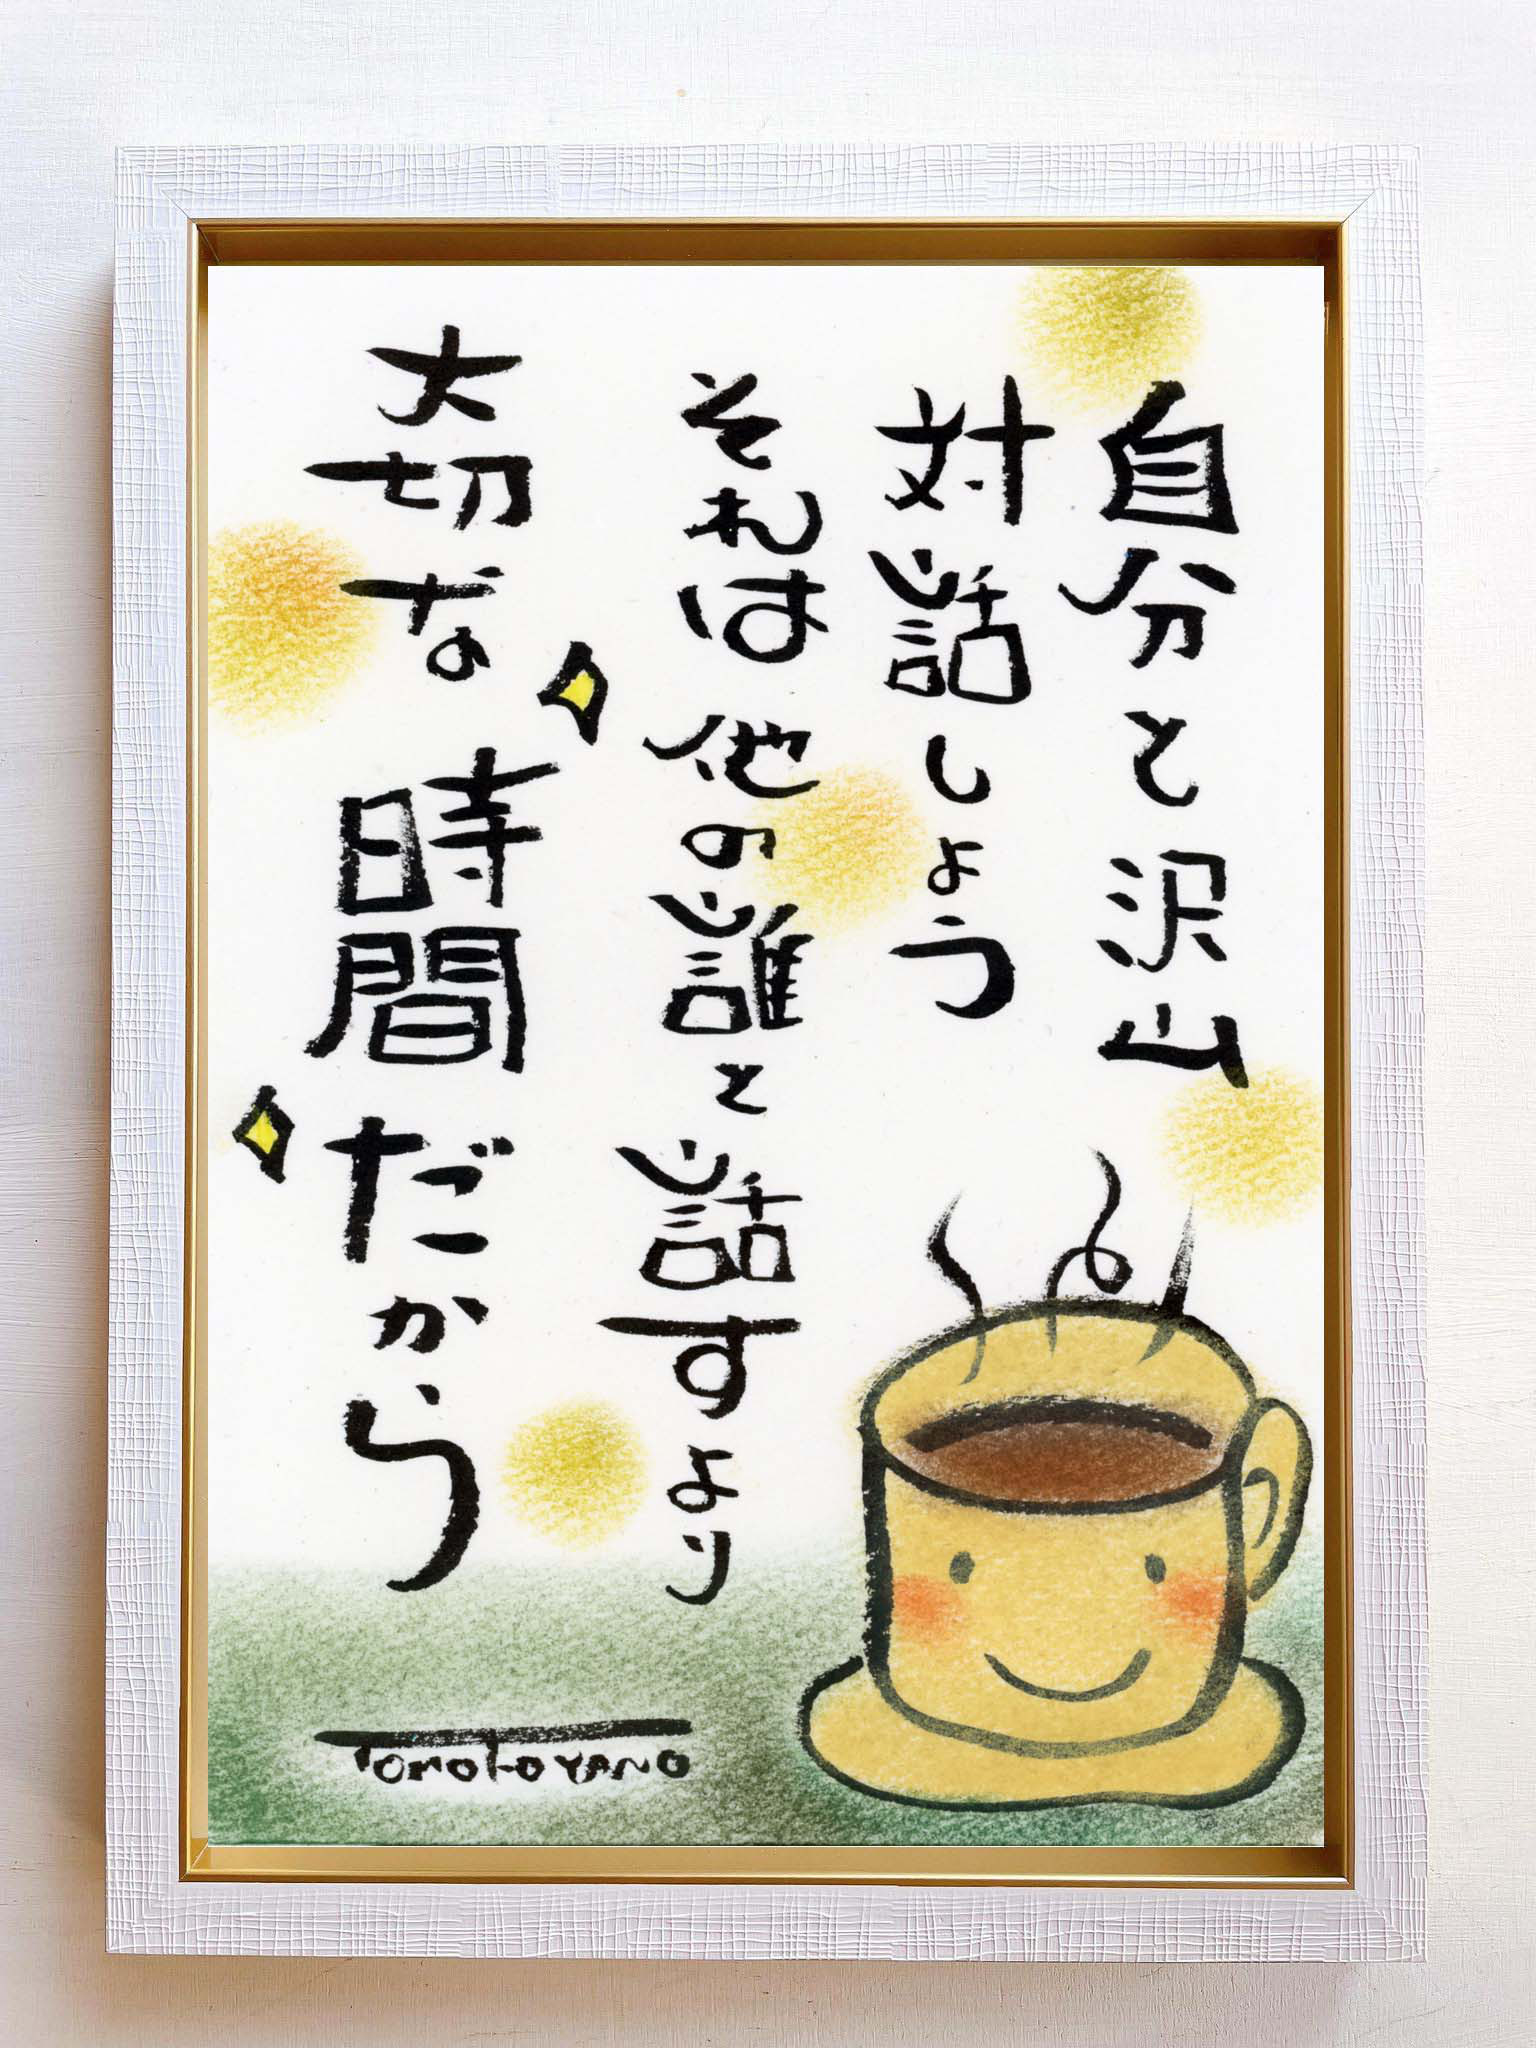 自分と沢山
対話しよう
それは他の誰と話すより
大切な時間だから
TOMOKO YANO